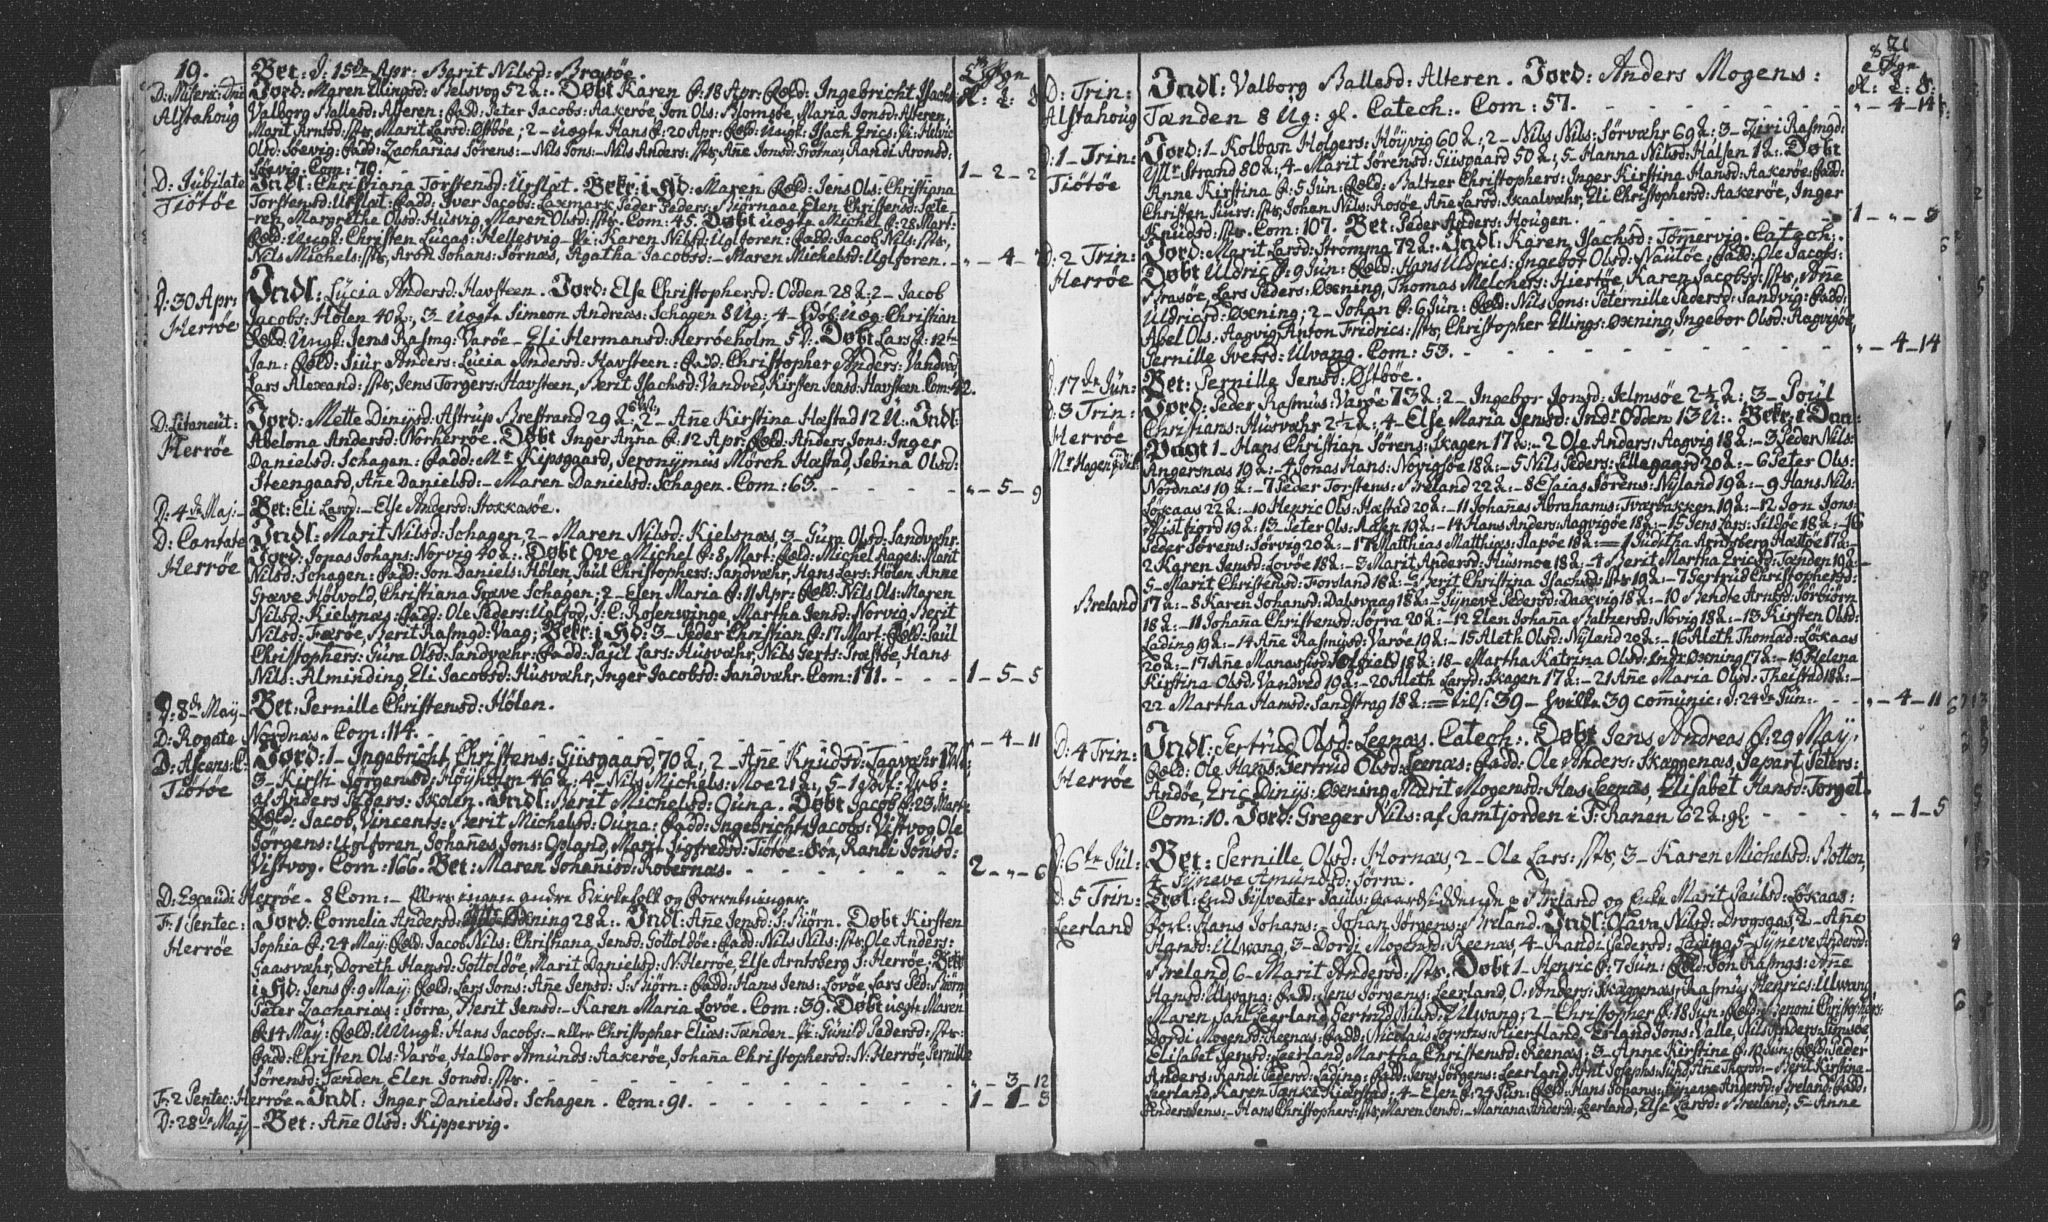 19.
Bet: J: 15de Apr: Berit Nilsd: Brasøe.
D: Miseric: Dni
Alstahoug
Jord: Maren Ellingsd: Belsvog 52 a:. Døbt Karen f: 18 Apr: Foræld: Ingebricht Isach:
Valborg Ballesd: Alteren: Fadd: Peter Jacobs: Aakerøe, Jon Ols: Blomsøe, Maria Jonsd: Alteren,
Marit Arnsd: ssts, Marit Larsd: Østbøe; 2 - uægte Hans f: 20 Apr: Foræld: Ungk: Isach Erics: Pi: Helvic
Olsd: Søevig: Fadd: Zacharias Sørens: - Nils Jons: - Nils Anders: ssts, Añe Jonsd: Grøtnæs, Randi Aronsd:
Søevig. Com: 70. 1 - 2 - 2
D: Jubilate
Tiøtøe
Indl: Christiana Torstensd: Urstat. Bekr: i H D: Maren Foræld: Jens Ols: Christiana
Torstensd: Urstat: Fadd: Iver Jacobs: Laxmark, Peder Peders: Biørnaae, Elen Christensd:
ren, Margrethe Olsd: Husvig, Maren Olsd: ssts. Com: 45. Døbt uægte Michel f: 28 Mart:
Foræld: Ungk: Christen Lucas: Hellesvig - Pi: Karen Nilsd: Uglforen: Fadd: Jacob Nils: ssts,
Nils Michels: ssts, Aron Johans: Sørnæs, Agatha Jacobsd: - Maren Michelsd: Uglforen. " - 4 - 7
D: 30 Apr:
Herrøe
Indl: Lucia Andersd: Havsteen. Jord: Else Christophersd: Odden 28 a: 2 - Jacob
Jacobs: Hølen 40 a:, 3 - uægte Simeon Andreas: Schagen 8 Ug: 4 - uæg: Christian
Foræld: Ungk: Jens Rasmg: Varøe - Eli Hermansd: Herrøeholm 5 D:. Døbt Lars f: 12te
Jan: Foræld: Siur Anders: Lucia Andersd: Havsteen: Fadd: Christopher Anders: Vandved,
Lars Alexand: ssts, Jens Torgers: Havsteen, Berit Isachsd: Vandved, Kirsten Jensd: Havsteen. Com: 42.
D: Litaneut:
Herrøe
Jord: Mette Dinysd: Astrup Brestrand 29 a: 2 - Añe Kirstina Hæstad 12 U:. Indl:
Abelona Andersd: Norherrøe. Døbt Inger Anna f: 12 Apr: Foræld: Anders Jons: Inger
Danielsd: Schagen: Fadd: Mr Kipsgaard, Jeronymus Mørch Hæstad, Sebina Olsd:
Steengaard, Añe Danielsd: - Maren Danielsd: Schagen. Com: 63. " - 5 - 9
D: 4de Maj: - Bet: Eli Larsd: - Else Andersd: Stokkasøe.
D: Cantate
Herrøe
Indl: Marit Nilsd: Schagen, 2 - Maren Nilsd: Kielsnæs, 3 - Gura Olsd: Sandvæhr.
Jord: Jonas Johans: Norvig 40 a:. Døbt Ove Michel f: 8 Mart: Foræld: Michel Aages: Marit
Nilsd: Schagen: Fadd: Jon Daniels: Hølen, Paul Christophers: Sandvæhr, Hans Lars: Hølen, Anne
Græve Hølvold, Christiana Græve Schagen; 2 - Elen Maria f: 11 Apr: Foræld: Nils Ols: Maren
Nilsd: Kielsnæs: Fadd: Ole Peders: Uglsod, J: C: Rosenwinge, Martha Jensd: Norvig, Berit
Nilsd: Færøe, Berit Rasmgd: Vaag; Bekr: i H D: 3 - Peder Christian f: 17 Mart: Foræld: Paul
Christophers: Gura Olsd: Sandvæhr: Fadd: Paul Lars: Husvæhr, Nils Gerts: Præstøe, Hans
Nils: Alminding, Eli Jacobsd: Husvæhr, Inger Jacobsd: Sandvæhr. Com: 171. 1 - 5 - 5
D: 8de May - Bet: Pernille Christensd: Hølen.
D: Rogate - Nordnæs - Com: 114. " - 4 - 11
D: Ascens: C:
Tiøtøe
Jord: 1 - Ingebricht Christens: Giisgaard, 70 a:, 2 - Añe Knudsd: Tagvæhr
3 - Kirsti Jørgensd: Høyholm 46 a: 4 - Nils Michels: Moe 21 a:, 5 - 1
af Anders Peders: Skolen. Indl: Berit Michelsd: Ouna. Døbt Jacob f: 23 Mart:
Foræld: Jacob Vincents: Berit Michelsd: Ouna: Fadd: Ingebricht Jacobs: Vistvog, Ole
Jørgens: Uglforen, Johañes Jons: Opland, Marit Sigfredsd: Tiøtøe: Søn, Randi Jonsd:
Vistvog. Com: 166. Bet: Maren Johañisd: Kobernæs. 2 - " - 6
D: Exaudi: Herrøe - 8 Com: - Ellers ingen andre Kirkefolk og Forretninger.
F: 1 Pentec:
Herrøe
Jord: Cornelia Andersd: Øxning 28 a:. Indl: Añe Jensd: S: Biørn. Døbt Kirsten
Sophia f: 24 May: Foræld: Jacob Nils: Christiana Jensd: Gottoldøe: Fadd: Nils Nils: ssts, Ole Anders:
Gaasvæhr, Doreth Hansd: Gottoldøe, Marit Danielsd: N: Herrøe, Else Arntsberg S: Herrøe, Bekr:
i H D: Jens f: 9 May: Foræld: Lars Jons: Añe Jensd: S: Biørn: Fadd: Hans Jens: Lovøe, Lars Ped: Biørn
Peter Zacharias: Sørra, Berit Jensd: - Karen Maria Lovøe. Com: 39. Døbt uægte Maren
f: 14 May: Foræld: U Ungk: Hans Jacobs: - eller Christopher Elias: Tænden - Pi: Gunild Pedersd: ssts:
Fadd: Christen Ols: Varøe, Haldor Amunds: Aakerøe, Johaña Christophersd: N: Herrøe, Pernille
Sørensd: Tænden, Elen Jonsd: ssts. " - 3 - 12
F: 2 Pentec: Herrøe - Indl: Inger Danielsd: Schagen. Com: 91. 1 - 1 - 3
D: 28de May - Bet: Añe Olsd: Kippervig.
D: Trin:
Alstahoug
Indl: Valborg Ballesd: Alteren. Jord: Anders Mogens:
Tænden 8 Ug: gl. Catech:. Com: 57. " - 4 - 14
D: 1 Trin:
Tiøtøe
Jord: 1 - Kolbarn Holgers: Høyvig 60 a:, 2 - Nils Nils: Sørvæhr 69 a: 3 - Ziri Rasmgd:
Strand 80 a: 4 - Marit Sørensd: Giisgaard 50 a:, 5 - Hanna Nilsd: Halsen 1 a:. Døbt
Anne Kirstina f: 5 Jun: Foræld: Baltzer Christophers: Inger Kirstina Hansd: Aakerøe: Fadd:
Christen Siurs: ssts, Johan Nils: Rosøe, Añe Larsd: Skaalvæhr, Eli Christophersd: Aakerøe, Inger
Knudsd: ssts. Com: 107. Bet: Peder Anders: Hougen. 1 - " - 8
D: 2 Trin:
Herrøe
Jord: Marit Larsd: Strømma 72 a:. Indl: Karen Isachsd: Tømervig. Catech:.
Døbt Uldric f: 9 Jun: Foræld: Hans Uldrics: Ingebor Olsd: Nautøe: Fadd: Ole Jacobs:
Brasøe, Lars Peders: Øxning, Thomas Melchers: Hiertøe, Karen Jacobsd: ssts, Añe
Uldricsd: Øxning; 2 - Johan f: 6 Jun: Foræld: Nils Jons: Peternille Pedersd: Sandvig: Fadd:
Abel Ols: Aagvig, Anton Fridrics: ssts, Christopher Ellings: Øxning, Ingebor Olsd: Aagvigøe,
Pernille Iversd: Ulvang. Com: 53. " - 4 - 14
D: 17de Jun:
Bet: Pernille Jensd: Østbøe.
D: 3 Trin:
Herrøe
Mr Hagen
Jord: Peder Rasmus: Varøe 73 a: 2 - Ingebor Jonsd: Jelmsøe 2½ a: 3 - Poul
Christians: Husvæhr 2½ a: 4 - Else Maria Jensd: Indr Odden 13 U:. Bekr: i Daa:
Pagt 1 - Hans Christian Sørens: Skagen 17 a: - 2 Ole Anders: Aagvig 18 a: - 3 Peder Nils:
Angersnæs 19 a: - 4 Jonas Hans: Novigsøe 18 a: - 5 Nils Peders: Lillegaard 20 a: - 6 Peter Ols:
Nordnæs 19 a: - 7 Peder Torstens: Breland 22 a: - 8 Esaias Sørens: Nyland 19 a: - 9 Hans Nils:
Løkaas 22 a: - 10 Henric Ols: Hæstad 20 a: - 11 Johañes Abrahams: Tværbakken 19 a: - 12 Jon Jons:
Mistfiord 19 a: 13 - Peter Ols: Aasen 19 a: - 14 Hans Anders: Aagvigøe 18 a: - 15 Jens Lars: Sildøe 18 a: - 16
Peder Sørens: Sørvig 20 a: - 17 Matthias Matthias: Slapøe 18 a: = 1 Juditha Arndsberg Hæstøe 17 a: -
2 Karen Jensd: Lovøe 18 a: - 3 Marit Andersd: Husmoe 18 a: - 4 Berit Martha Ericsd: Tænden 19 a:
5 - Marit Christensd: Forsland 18 a: - 6 Berit Christina Isachsd: ssts 19 a: - 7 Gertrud Christophersd:
Breland
17 a: - 8 Karen Johansd: Dalsvaag 18 a: - 9 Syneve Pedersd: Daxvig 18 a: - 10 Bendte Arnsd: Sørbiørn
18 a: - 11 Johaña Christensd: Sørra 20 a: - 12 Elen Johana Baltzersd: Novig 18 a: - 13 Kirsten Olsd:
Lading 19 a: - 14 Añe Rasmusd: Varøe 19 a: - 15 Aleth Olsd: Nyland 20 a: - 16 Aleth Thomæd: Løkaas
20 a: - 17 Añe Manassisd: Tolfield 18 a: 18 - Martha Katrina Olsd: Indr Øxning 17 a: - 19 Helena
Kirstina Olsd: Vandved 19 a: - 20 Aleth Larsd: Skagen 17 a: - 21 Añe Maria Olsd: Theistad 18 a: -
22 Martha Hansd: Sandstrag 18 a: = tils: 39 - hvilke 39 comunic: J: 24de Jun: " - 4 - 11
D: 4 Trin:
Herrøe
Indl: Gertrud Olsd: Leenæs. Catech:. Døbt Jens Andreas f: 29 May:
Foræld: Ole Hans: Gertrud Olsd: Leenæs: Fadd: Ole Anders: Skæggenæs, Jepart Peters:
Andøe, Eric Dinys: Øxning, Marit Mogensd: Hans: Leenæs, Elisabet Hansd: Torget.
Com: 10. Jord: Greger Nils: af Jamtjorden i T: Ranen 62 a: gl: " - 1 - 5
D: 6te Jul:
Bet: Pernille Olsd: Hornæs, 2 - Ole Lars: ssts, 3 - Karen Michelsd: Botten,
4 - Syneve Amundsd: Sørra.
D: 5 Trin:
Leerland
Trol: Sylvester Pauls: Gaardsiddende p: Breland og Enke Marit Paulsd: Løkaas:
Forl: Hans Johans: - Johan Jørgens: Breland. Indl: Olava Nilsd: Drogsgas, 2 - Añe
Hansd: Ulwang, 3 - Dordi Mogensd: Reenæs, 4 - Randi Pedersd: Lading, 5 - Syneve Andersd:
Breland, 6 - Marit Andersd: ssts. Døbt 1 - Henric f: 7 Jun: Foræld: Jon Rasmgs: Añe
Hansd: Ulwang: Fadd: Jens Jørgens: Leerland, O: Anders: Skæggenæs, Rasmus Henrics: Ulwang,
Maren Dahl Leerland, Gertrud Nilsd: Ulwang; 2 - Christopher f: 18 Jun: Foræld: Benoni Christophers:
Dordi Mogensd: Reenæs: Fadd: Nicolaus Lorntzs: Hiertland, Erland Jons: Valle, Nils Anders: Simsøe,
Elisabet Jensd: Leerland, Martha Christensd: Reenæs; 3 - Anne Kirstine f: 10 Jun: Foræld: Peder
Anders: Randi Pedersd: Lading: Fadd: Jens Jørgens: Leerland, Arnt Josephs: Sund, Añe Thord: - Berit Kirstina -
Leerland, Karen Tanke Kierstad; 4 - Elen f: 24 Jun: Foræld: Hans Johans: Synnøve Andersd: Breland: Fadd:
Anders Jens: - Hans Christophers: ssts, Maren Jensd: - Mariana Andersd: Leerland, Else Larsd: Breland; 5 - Anne